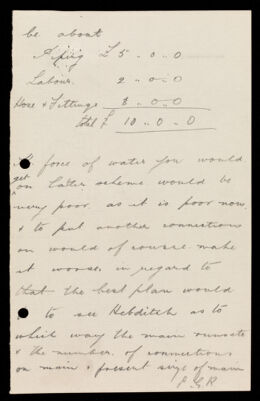 be about
Piping £ 5 .. 0 .. 0
Labour. 2 .. 0 .. 0
Hose & Fittings 3 .. 0 .. 0
total £ 10 .. 0 .. 0
The force of water you would
get on latter scheme would be
very poor, as it is poor now,
& to put another connections
on would of course make
it worse, in regard to
that the best plan would
to see Hebditch as to
which way the main runs to
& the number, of connections
on main & present size of main